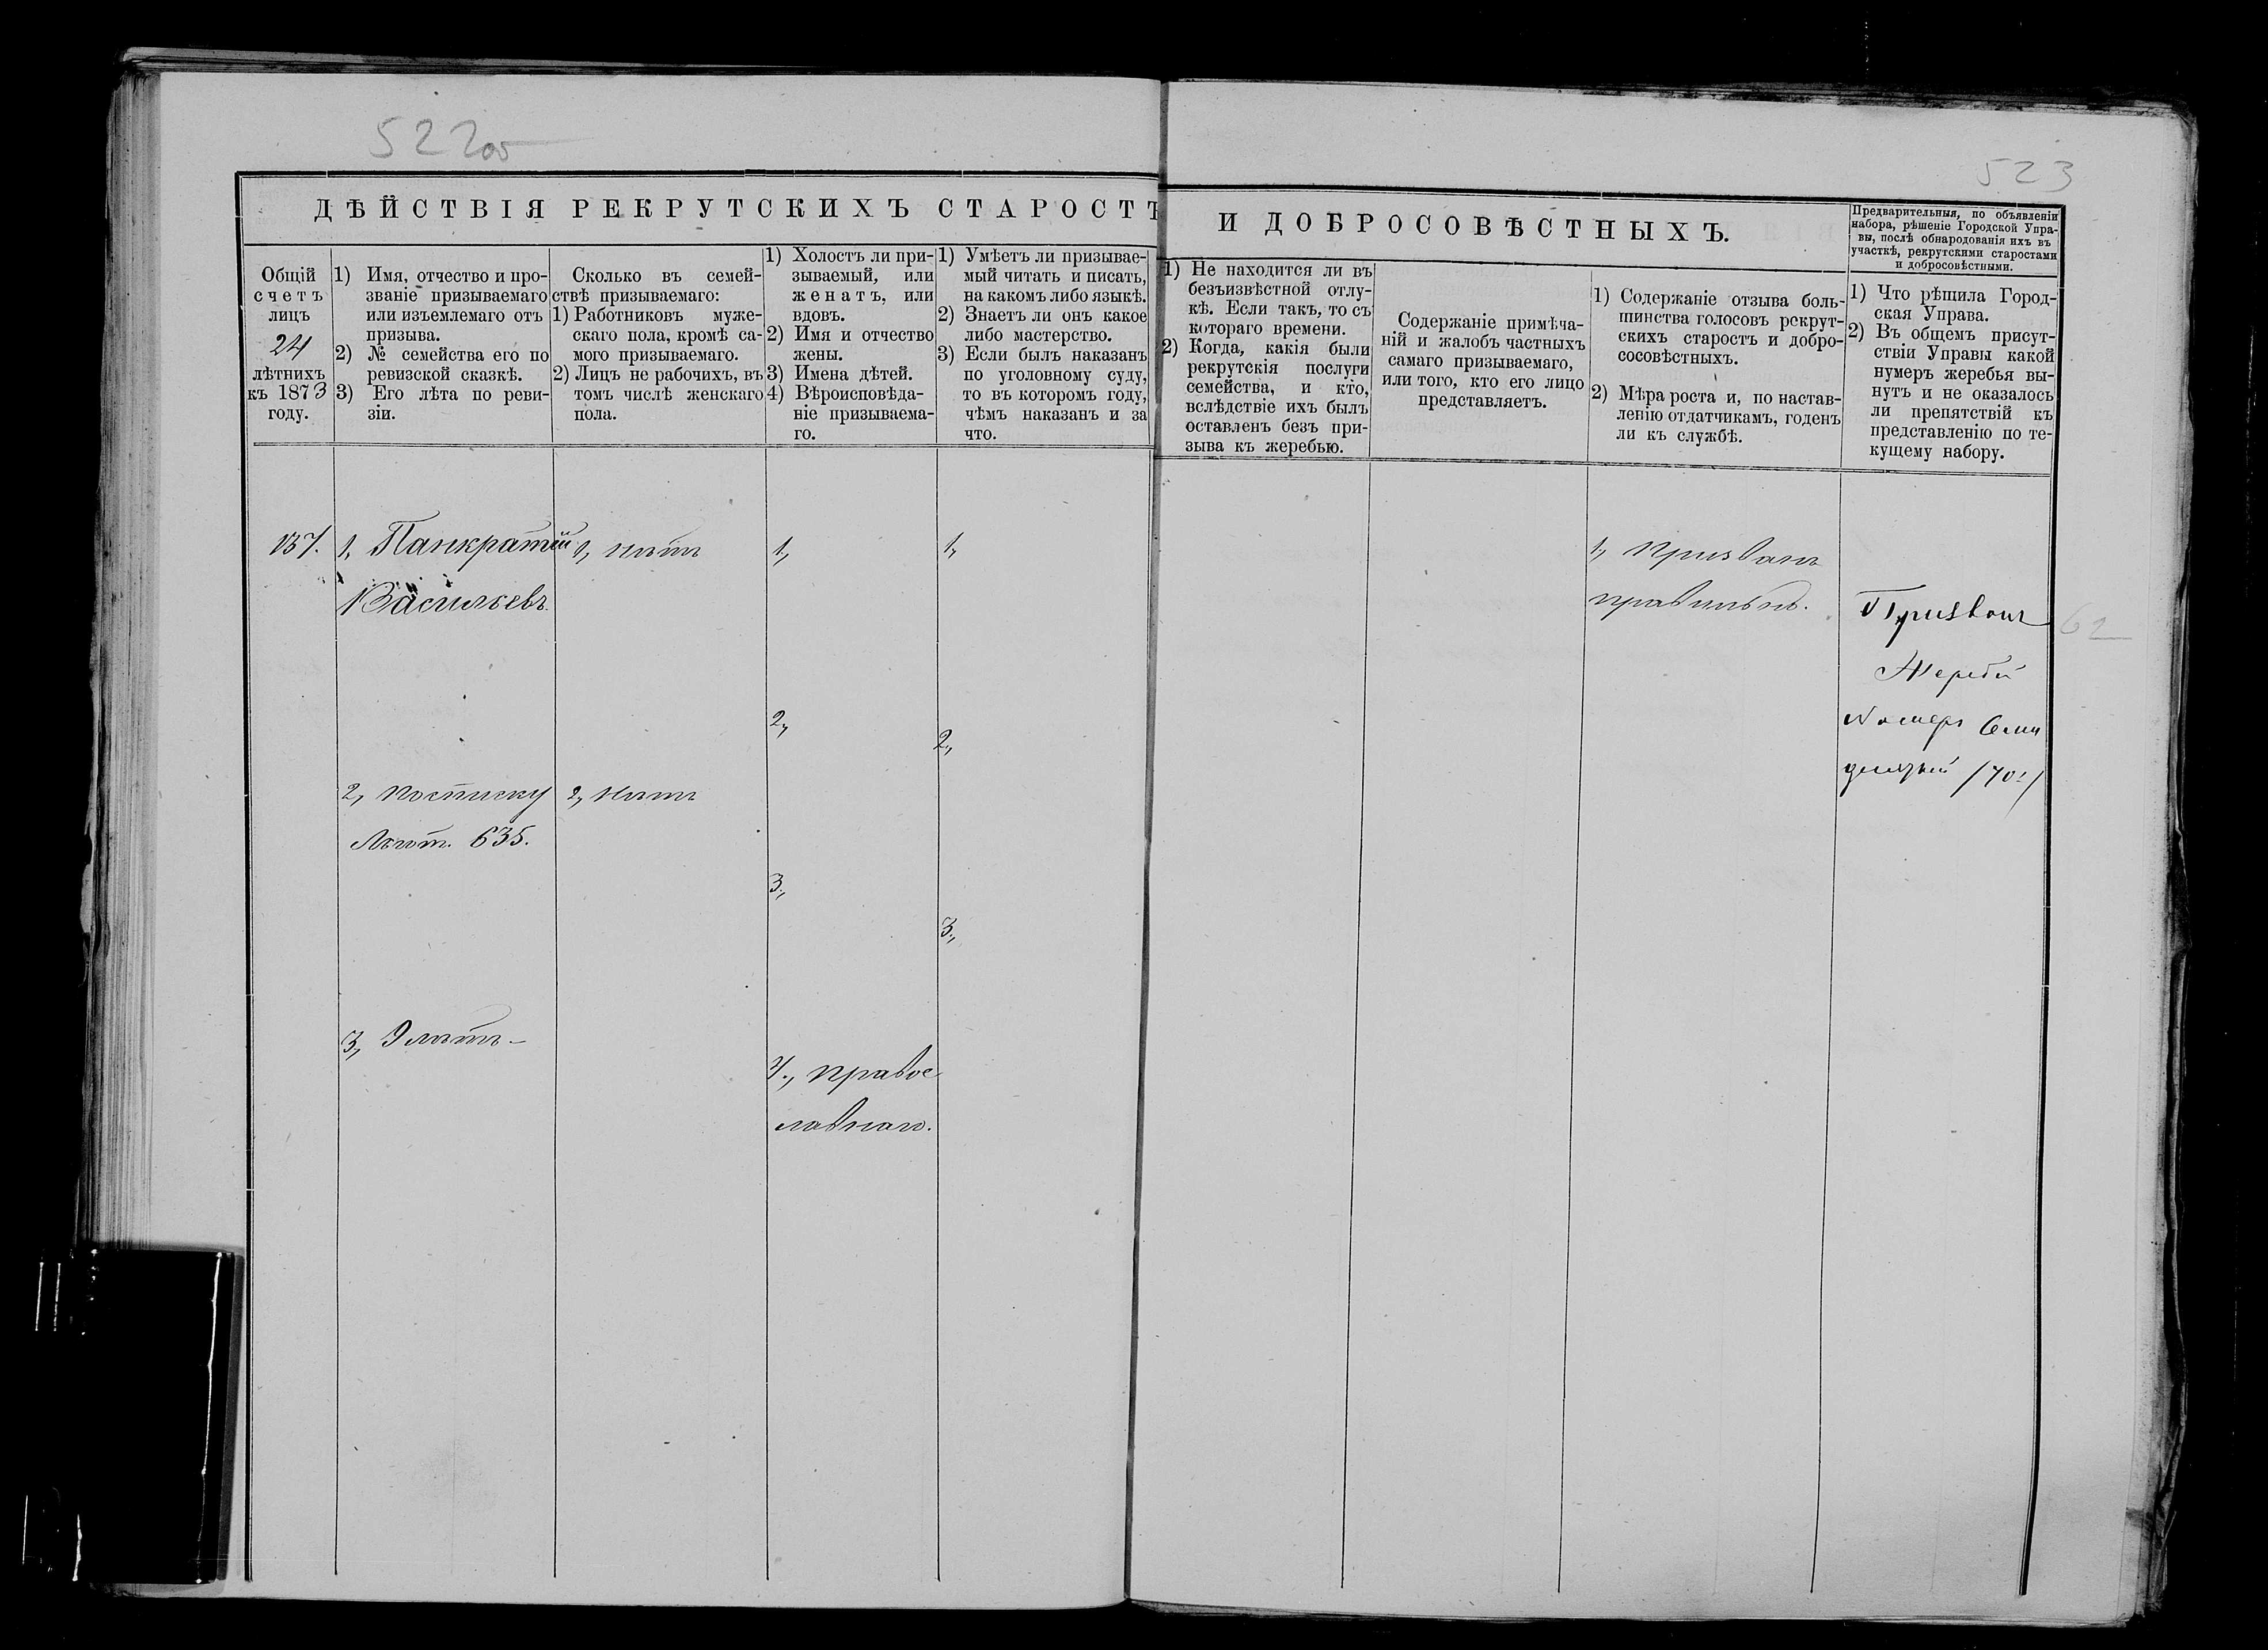 522об
523
ДѢЙСТВІЯ РЕКРУТСКИХЪ СТАРОСТЪ
И ДОБРОСОВѢСТНЫХЪ.
Предварительныя, по объявленіи
набора, рѣшеніе Городской Упра-
вы, послѣ обнародованія ихъ въ
участкѣ, рекрутскими старостами
и добросовѣстными.
Общій
счетъ
лицъ
24
лѣтнихъ
къ 1873
году.
1) Имя, отчество и про-
званіе призываемаго
или изъемлемаго отъ
призыва.
2) № семейства его по
ревизской сказкѣ.
3) Его лѣта по реви-
зіи.
Сколько въ семей-
ствѣ призываемаго:
1) Работниковъ муже-
скаго пола, кромѣ са-
мого призываемаго.
2) Лицъ не рабочихъ, въ
томъ числѣ женскаго
пола.
1) Холостъ ли при-
зываемый, или
женатъ, или
вдовъ.
2) Имя и отчество
жены.
3) Имена дѣтей.
4) Вѣроисповѣда-
ніе призываема-
го.
1) Умѣетъ ли призывае-
мый читать и писать,
на какомъ либо языкѣ.
2) Знаетъ ли онъ какое
либо мастерство.
3) Если былъ наказанъ
по уголовному суду,
то въ которомъ году,
чѣмъ наказанъ и за
что.
1) Не находится ли въ
безъизвѣстной отлу-
кѣ. Если такъ, то съ
котораго времени.
2) Когда, какія были
рекрутскія послуги
семейства, и кто,
вслѣдствіе ихъ былъ
оставленъ безъ при-
зыва къ жеребью.
Содержаніе примѣча-
ній и жалобъ частныхъ
самаго призываемаго,
или того, кто его лицо
представляетъ.
1) Содержаніе отзыва боль-
шинства голосовъ рекрут-
скихъ старостъ и добро-
сосовѣстныхъ.
2) Мѣра роста и, по настав-
ленію отдатчикамъ, годенъ
ли къ службѣ.
1) Что рѣшила Город-
ская Управа.
2) Въ общемъ присут-
ствіи Управы какой
нумеръ жеребья вы-
нутъ и не оказалось
ли препятствій къ
представленію по те-
кущему набору.
137.
1, Панкратій
Васильевъ.
2, по списку
635.
3, 9 лѣтъ
1, нѣтъ
2, нѣтъ
1,
2,
3,
4., правос
лавнаго.
1,
2,
3,
1, Призванъ
правильно.
Призванъ
Жеребій
Номеръ Семи
десятый /70:/
62